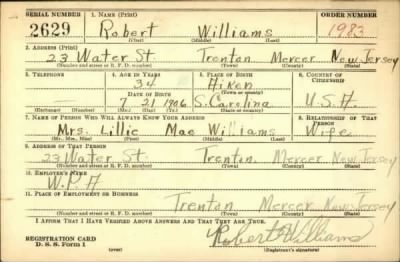 SERIAL NUMBER 1. NAME (Print) ORDER NUMBER
2629 Robert Williams 1983
(First) (Middle) (Last)
2. ADDRESS (Print)
23 Water St. Trenton Mercer New Jersey
(Number and street or R. F. D. number) (Town) (County) (State)
3. TELEPHONE 4. AGE IN YEARS 5. PLACE OF BIRTH 6. COUNTRY OF CITIZENSHIP
34 Aiken
DATE OF BIRTH (Town or county)
7 21 1906 S. Carolina U.S.A
(Exchange) (Number) (Mo.) (Day) (Yr.) (State or country)
7. NAME OF PERSON WHO WILL ALWAYS KNOW YOUR ADDRESS 8. RELATIONSHIP OF THAT PERSON
Mrs. Lillie Mae Williams Wife
(Mr., Mrs., Miss) (First) (Middle) (Last)
9. ADDRESS OF THAT PERSON
23 Water St. Trenton, Mercer New Jersey
(Number and street or R. F. D. number) (Town) (County) (State)
10. EMPLOYER'S NAME
W.P.A
11. PLACE OF EMPLOYMENT OR BUSINESS
Trenton Mercer New Jersey
(Number and street or R. F. D. number) (Town) (County) (State)
I AFFIRM THAT I HAVE VERIFIED ABOVE ANSWERS AND THAT THEY ARE TRUE.
REGISTRATION CARD
D. S. S. Form 1 Robert Williams
(over) (Registrant's signature)